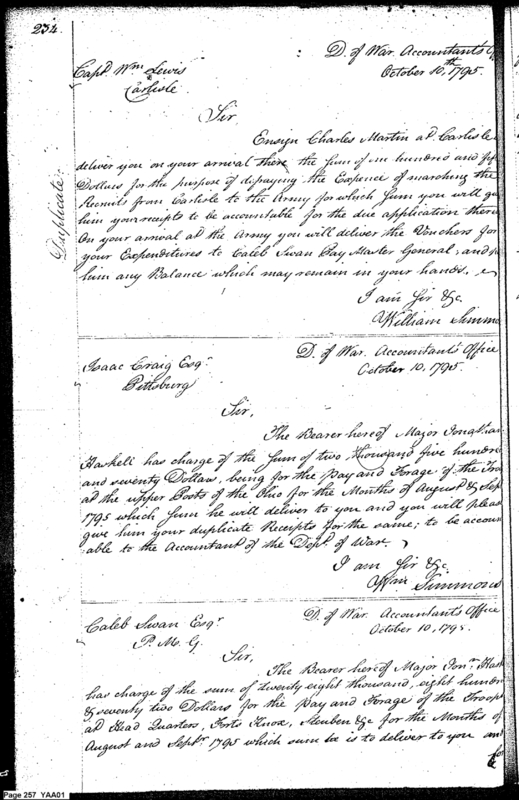 234.
D. of War. Accountant's Of
October 10,th 1795.
Capt. Wm Lewis
Carlisle
Sir
Duplicate
Ensign Charles Martin at Carlisle
deliver you on your arrival there the Sum of one hundred and fif
Dollars for the purpose of defraying the Expence of marching the
Recruits from Carlisle to the Army for which Sum you will gi
him your receipts to be accountable for the due application there
On your arrival at the Army you will deliver the Vouchers for
your Expenditures to Caleb Swan Pay Master General, and p
him any Balance which may remain in your hands.
I am Sir &c.
William Simmo
D. of War. Accountant's Office
October 10, 1795.
Isaac Craig Esqr
Pittsburg
Sir,
The Bearer hereof Major Jonathan
Haskell has charge of the Sum of two thousand five hundre
and seventy Dollars, being for the Pay and Forage of the Troo
at the upper Posts of the Ohio for the Months of August & Sept
1795 which Sum he will deliver to you and you will pleas
give him your duplicate Receipts for the same; to be account
able to the Accountant of the Dept of War.
I am Sir &c.
Wm Simmons
D. of War. Accountant's Office
October 10, 1795.
Caleb Swan Esqr
P. M. G.
Sir,
The Bearer hereof Major Jonn Hask
has charge of the sum of twenty eight thousand, eight hundre
& seventy two Dollars for the Pay and Forage of the Troops
at Head Quarters, Forts Knox, Steuben &c for the Months of
August and Septr 1795 which sum he is to deliver to you and
for
Page 257 YAA01